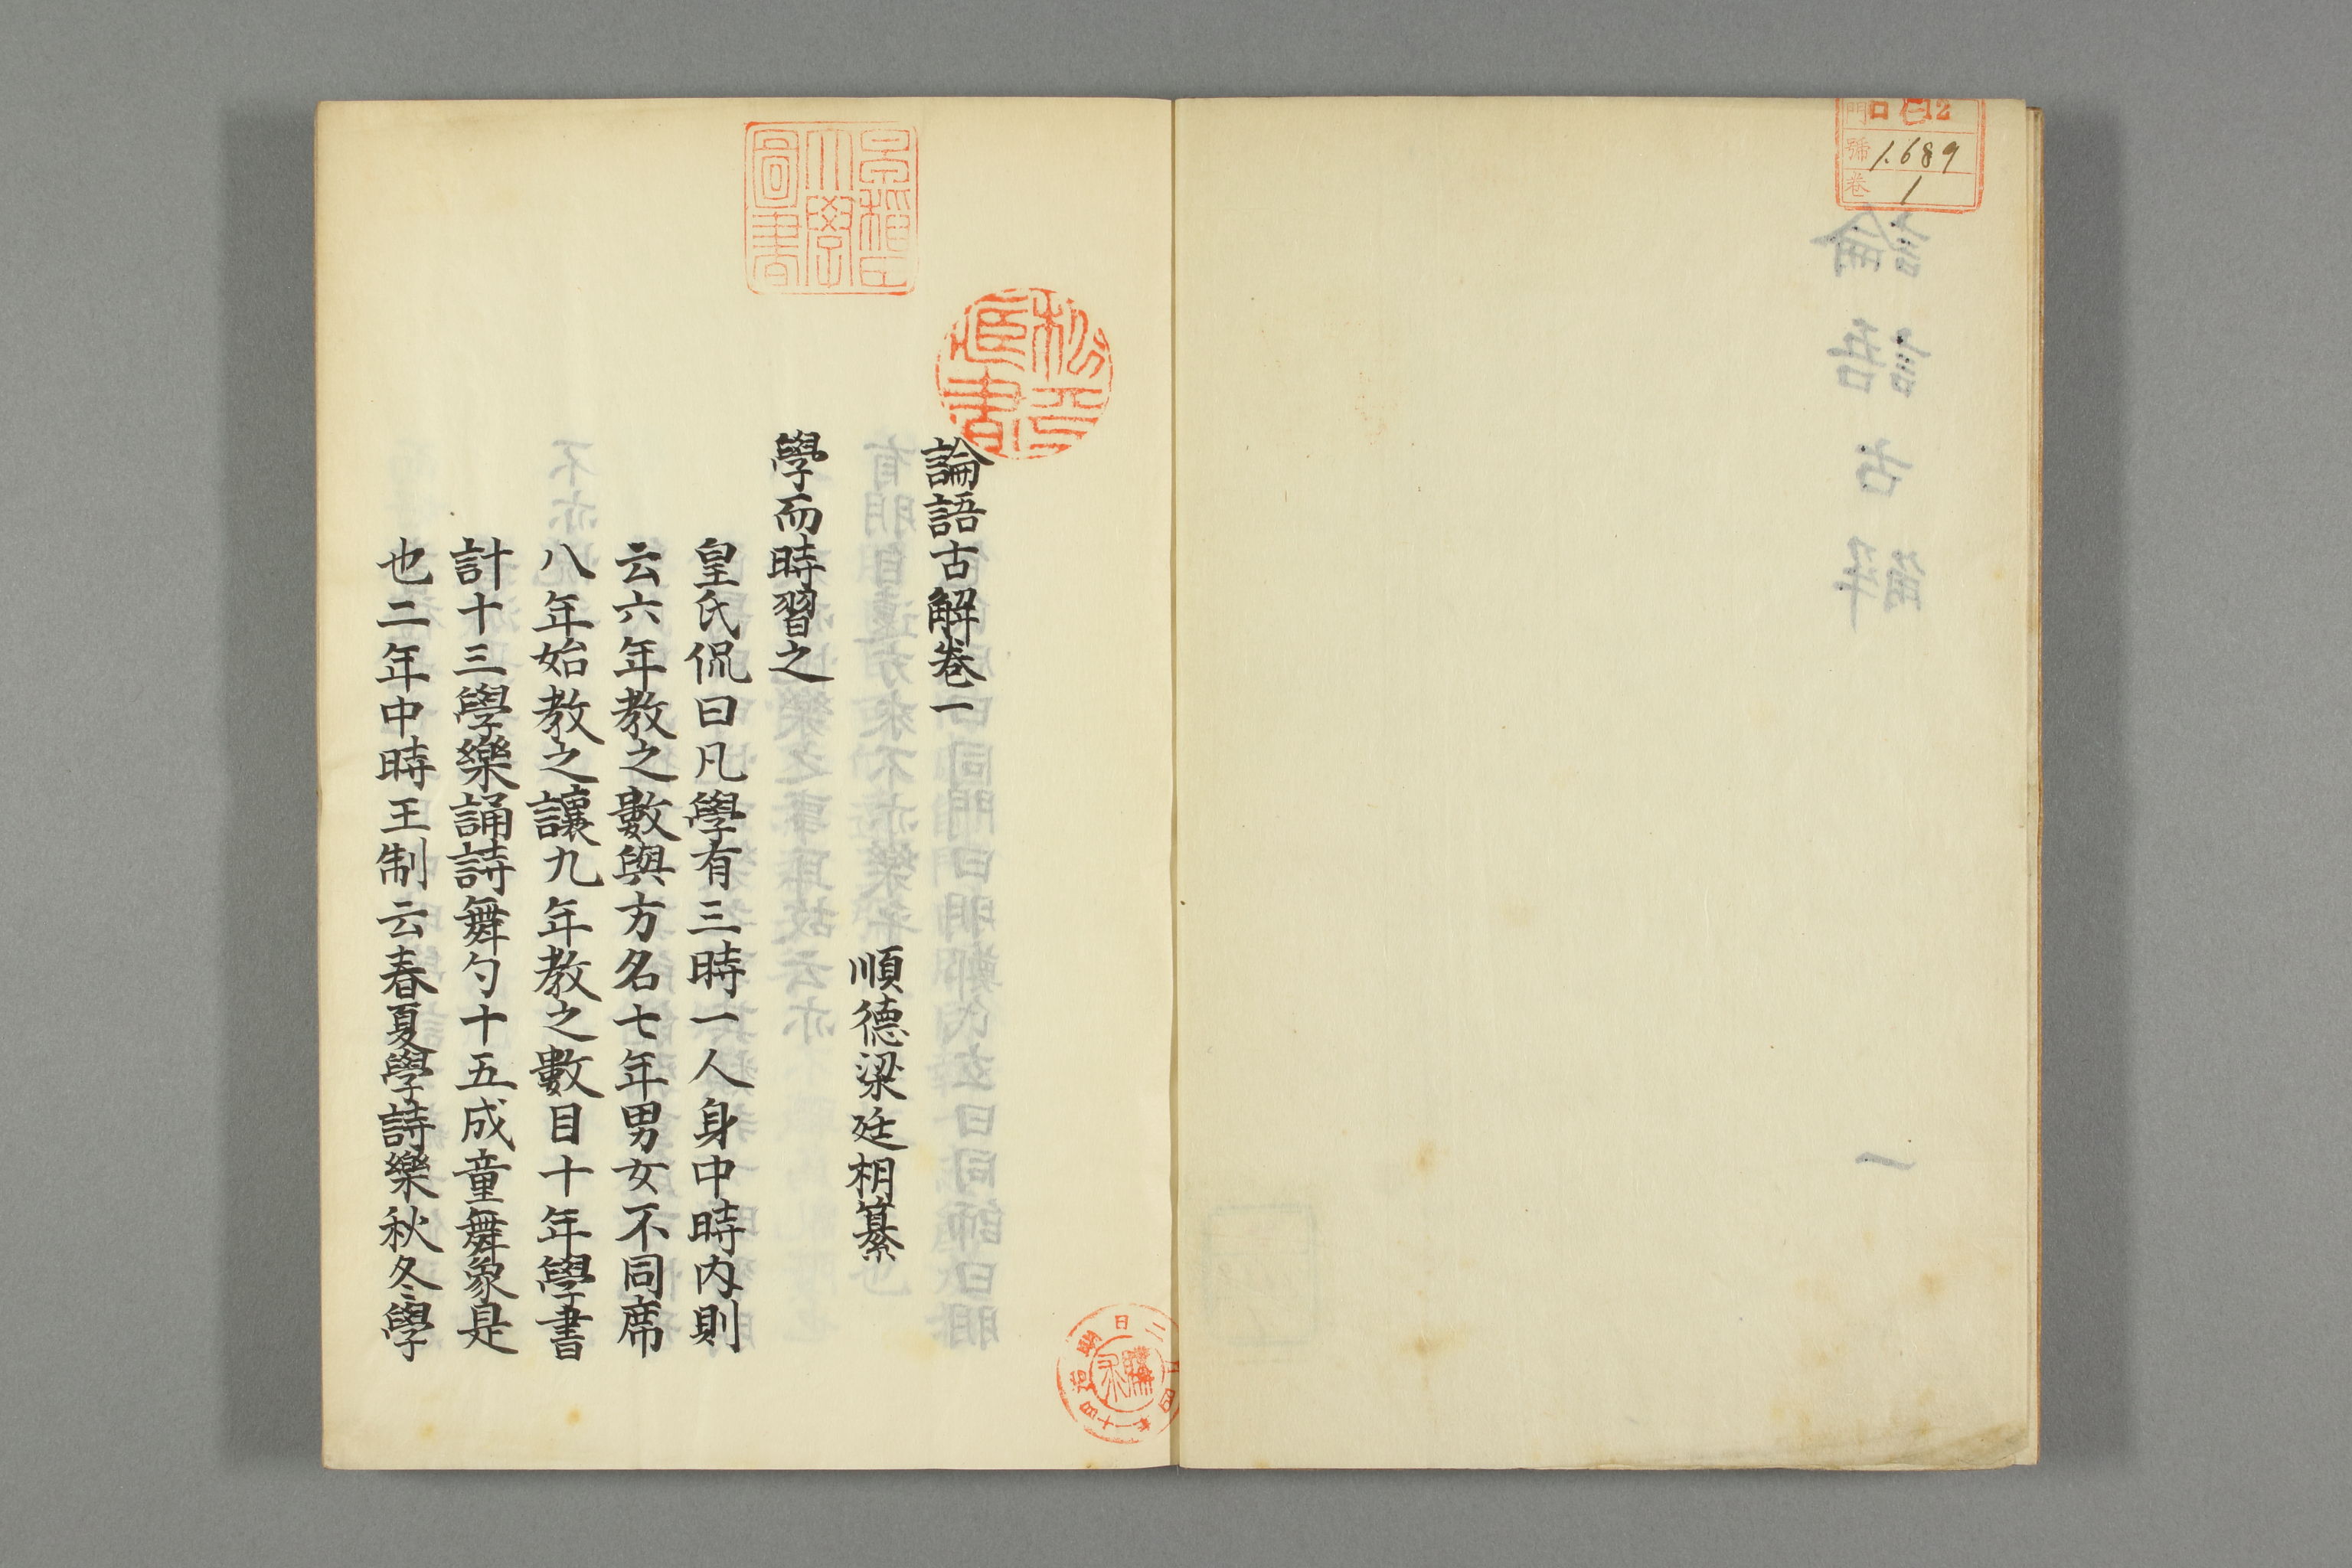 號 1.689
卷 1
論語古解
一
早稻田大學圖書
松平康書
論語古解卷一
順德梁廷枏纂
學而時習之
皇氏侃曰凡學有三時一人身中時内則
云六年教之數與方名七年男女不同席
八年始教之讓九年教之數目十年學書
計十三學樂誦詩舞勺十五成童舞象是
也二年中時王制云春夏學詩樂秋冬學